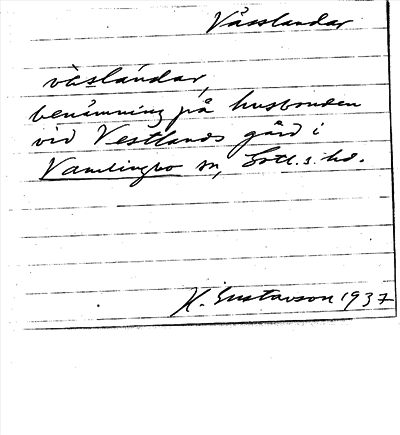 Vässlandar
väslándar,
benämning på husbonden
vid Vestlands gård i
Vamlingbo sn, Gotl. s. hd.
H. Gustavson 1937